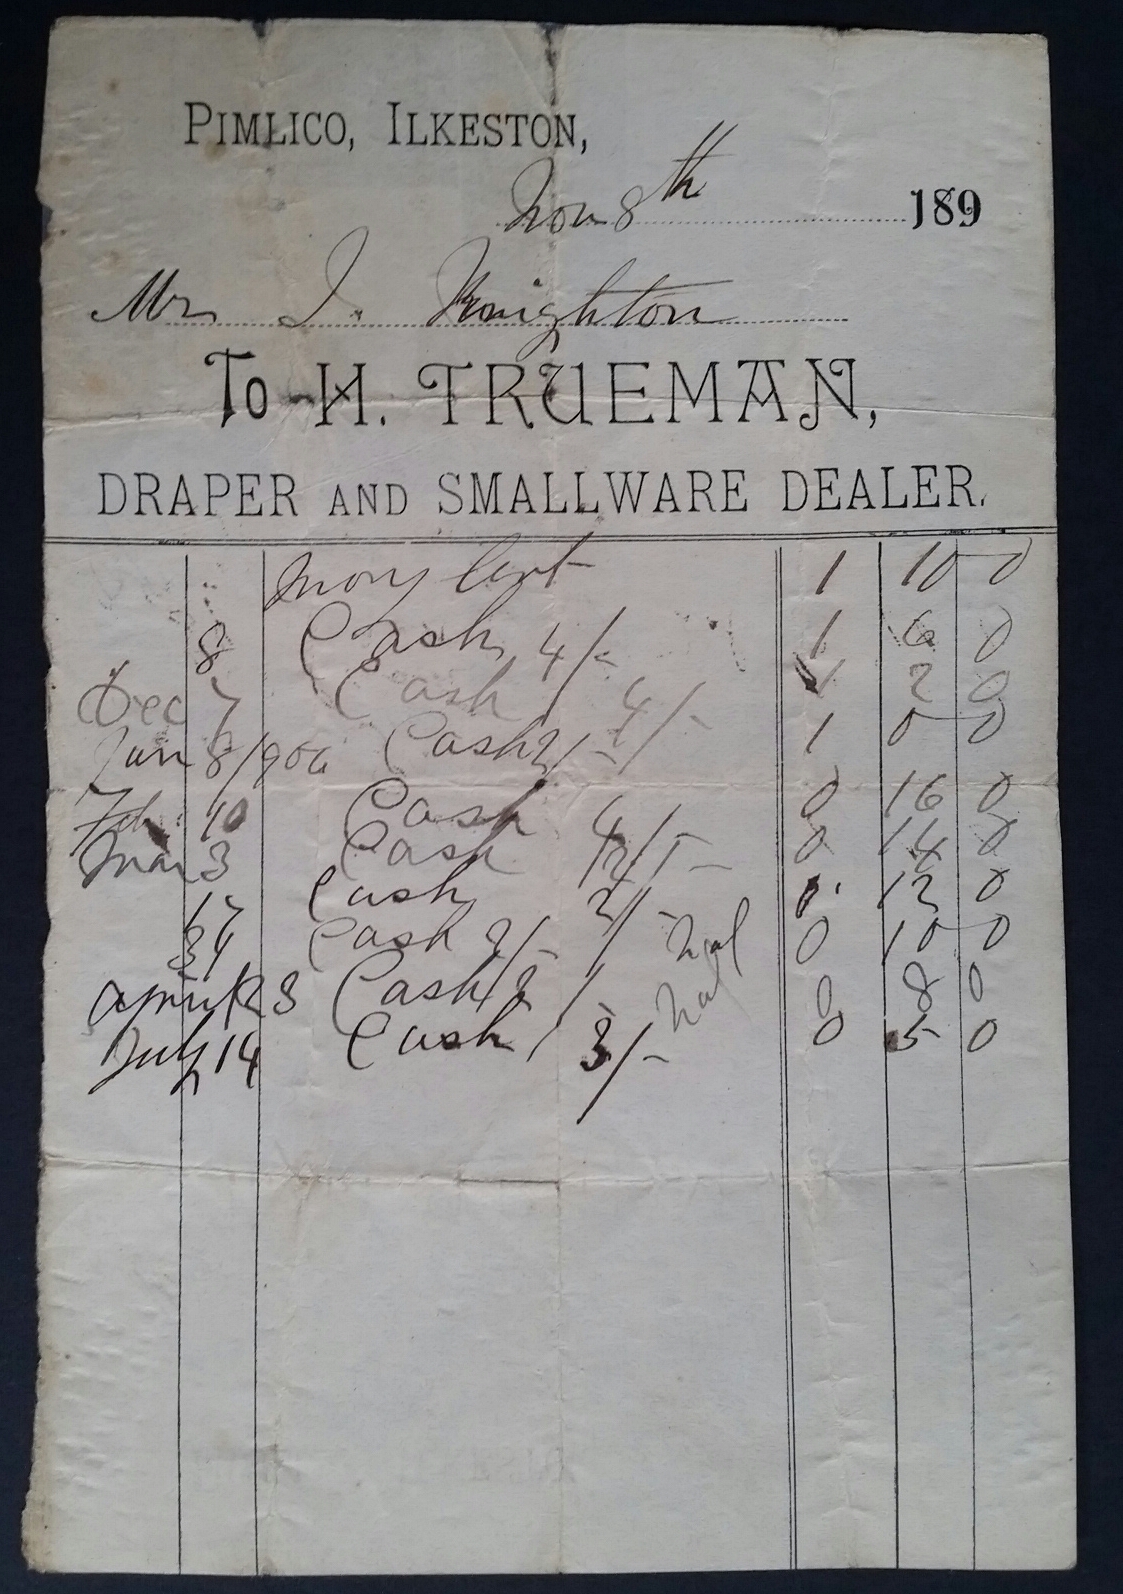 PIMLICO, ILKESTON,
Nov 8th 189
Mrs J. Knighton
To H. TRUEMAN,
DRAPER AND SMALLWARE DEALER.
mony lent 1 10 0
8 Cash 4/- 1 6 0
Dec 7 Cash 4/- 1 2 0
Jan 8/900 Cash 2/- 1 0 0
Feb 10 Cash 4/- 0 16 0
Mar 3 Cash 2/- 0 14 0
17 Cash 2/- 0 12 0
Cash 2/- 0 10 0
april Cash 2/ 0 8 0
July 14 Cash 3/- 0 5 0